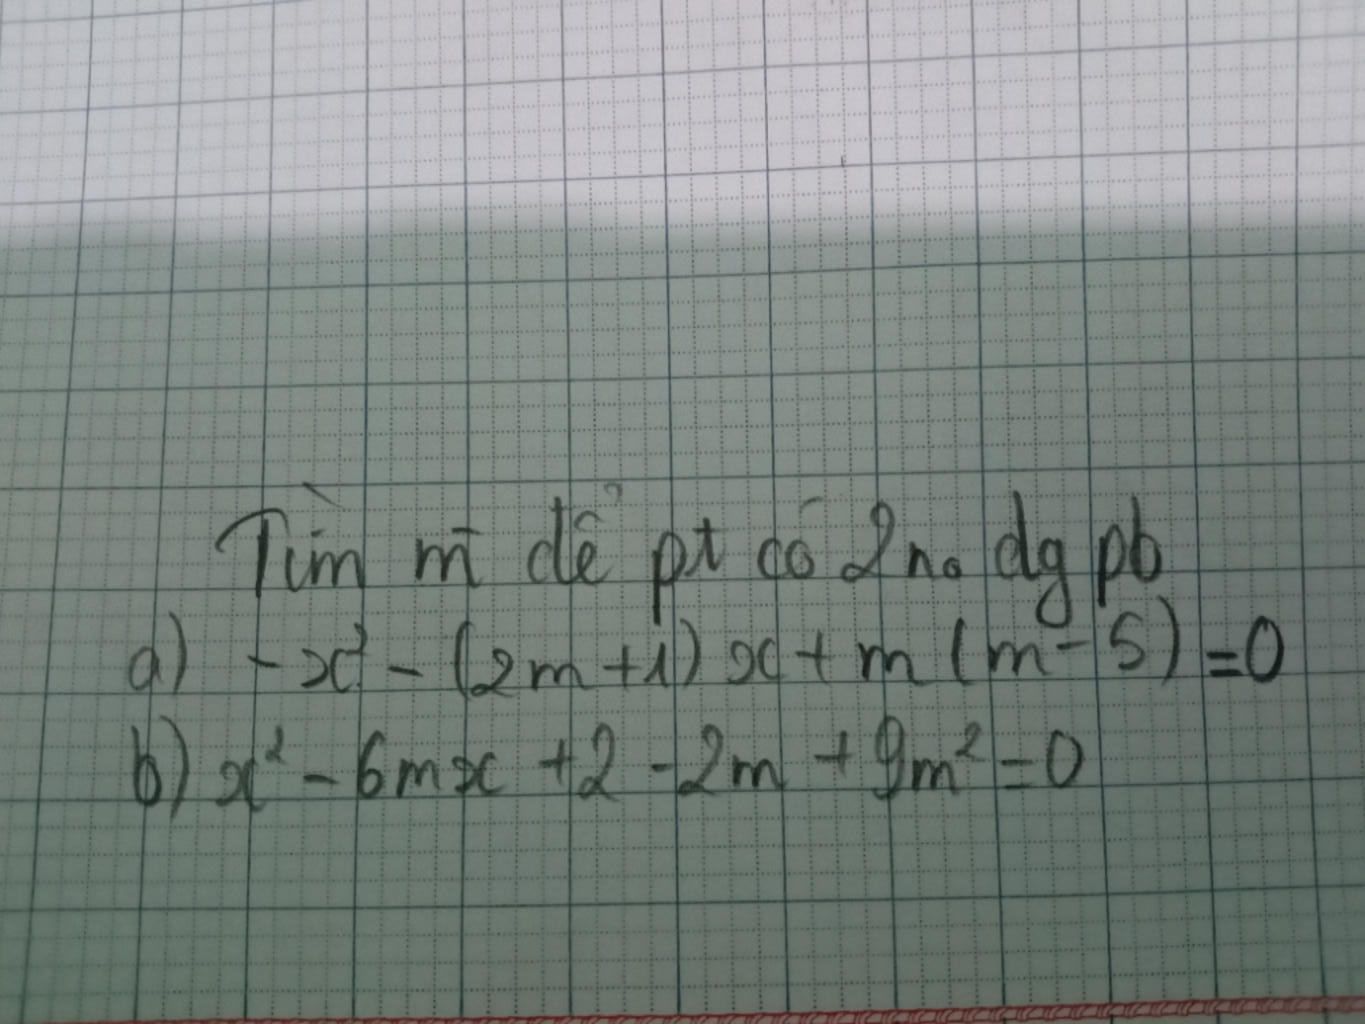 Tìm m để pt có 2 no dg pb
a) -x² - (2m+1)x + m(m-5) = 0
b) x² - 6mx + 2 - 2m + 9m² = 0